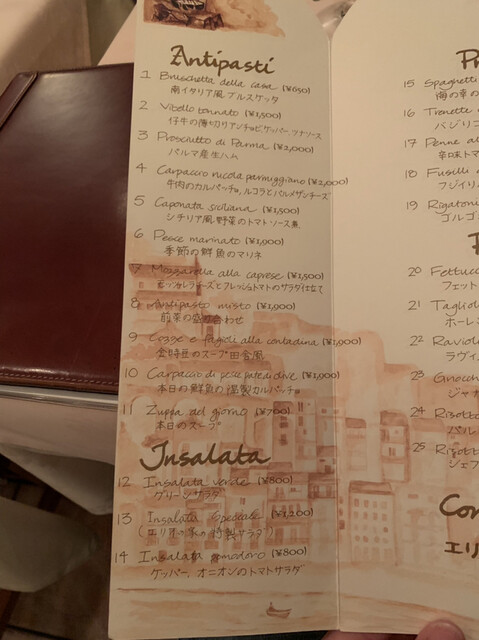 Antipasti
1 Bruschetta della casa (¥650)
南イタリア風ブルスケッタ
2 Vitello tonnato (¥1,500)
仔牛の薄切りアンチョビ、ケッパー、ツナソース
3 Prosciutto di Parma (¥2,000)
パルマ産生ハム
4 Carpaccio rucola parmiggiano (¥2,000)
牛肉のカルパッチョ、ルコラとパルメザンチーズ
5 Caponata siciliana (¥1,500)
シチリア風、野菜のトマトソース煮
6 Pesce marinato (¥1,900)
季節の鮮魚のマリネ
7 Mozzarella alla caprese (¥1,500)
モッツァレラチーズとフレッシュトマトのサラダ仕立て
8 Antipasto misto (¥1,900)
前菜の盛り合わせ
9 Cozze e fagioli alla contadina (¥1,900)
のスープ田舎風
10 Carpaccio di pesce (¥1,900)
本日の鮮魚の特製カルパッチョ
11 Zuppa del giorno (¥700)
本日のスープ
Insalata
12 Insalata verde (¥800)
グリーンサラダ
13 Insalata Speciale (¥1,200)
(エリオの家の特製サラダ)
14 Insalata pomodoro (¥800)
ケッパー、オニオンのトマトサラダ
Pr
15 Spaghetti
海の幸の
16 Trenette
バジリコ
17 Penne al
辛味トマト
18 Fusilli
フジイリ
19 Rigatoni
ゴルゴン
20 Fettucc
フェット
21 Tagliol
ホーレン
22 Ravioli
ラヴィ
23 Gnocch
ジャガ
24 Risotto
パル
25 Risotto
シェフ
Con
エリ